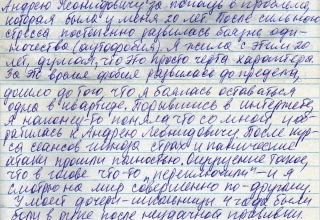 Андрею Леонидовичу за помощь в проблеме,
которая была у меня 20 лет. После сильного
стресса постепенно развилась боязнь оди-
ночества (аутофобия). Я жила с этим 20
лет, думая, что это просто черта характера.
За это время фобия развилась до предела,
дошло до того, что я боялась оставаться
одна в квартире. Порывшись в интернете,
я наконец-то поняла что со мной, и об-
ратилась к Андрею Леонидовичу. После кур-
са сеансов гипноза страх и панические
атаки прошли полностью. Ощущение такое,
что в голове что-то "переключили" – и я
смотрю на мир совершенно по-другому.
У моей дочери-школьницы 4 года были
боли в после неудачной прививки.